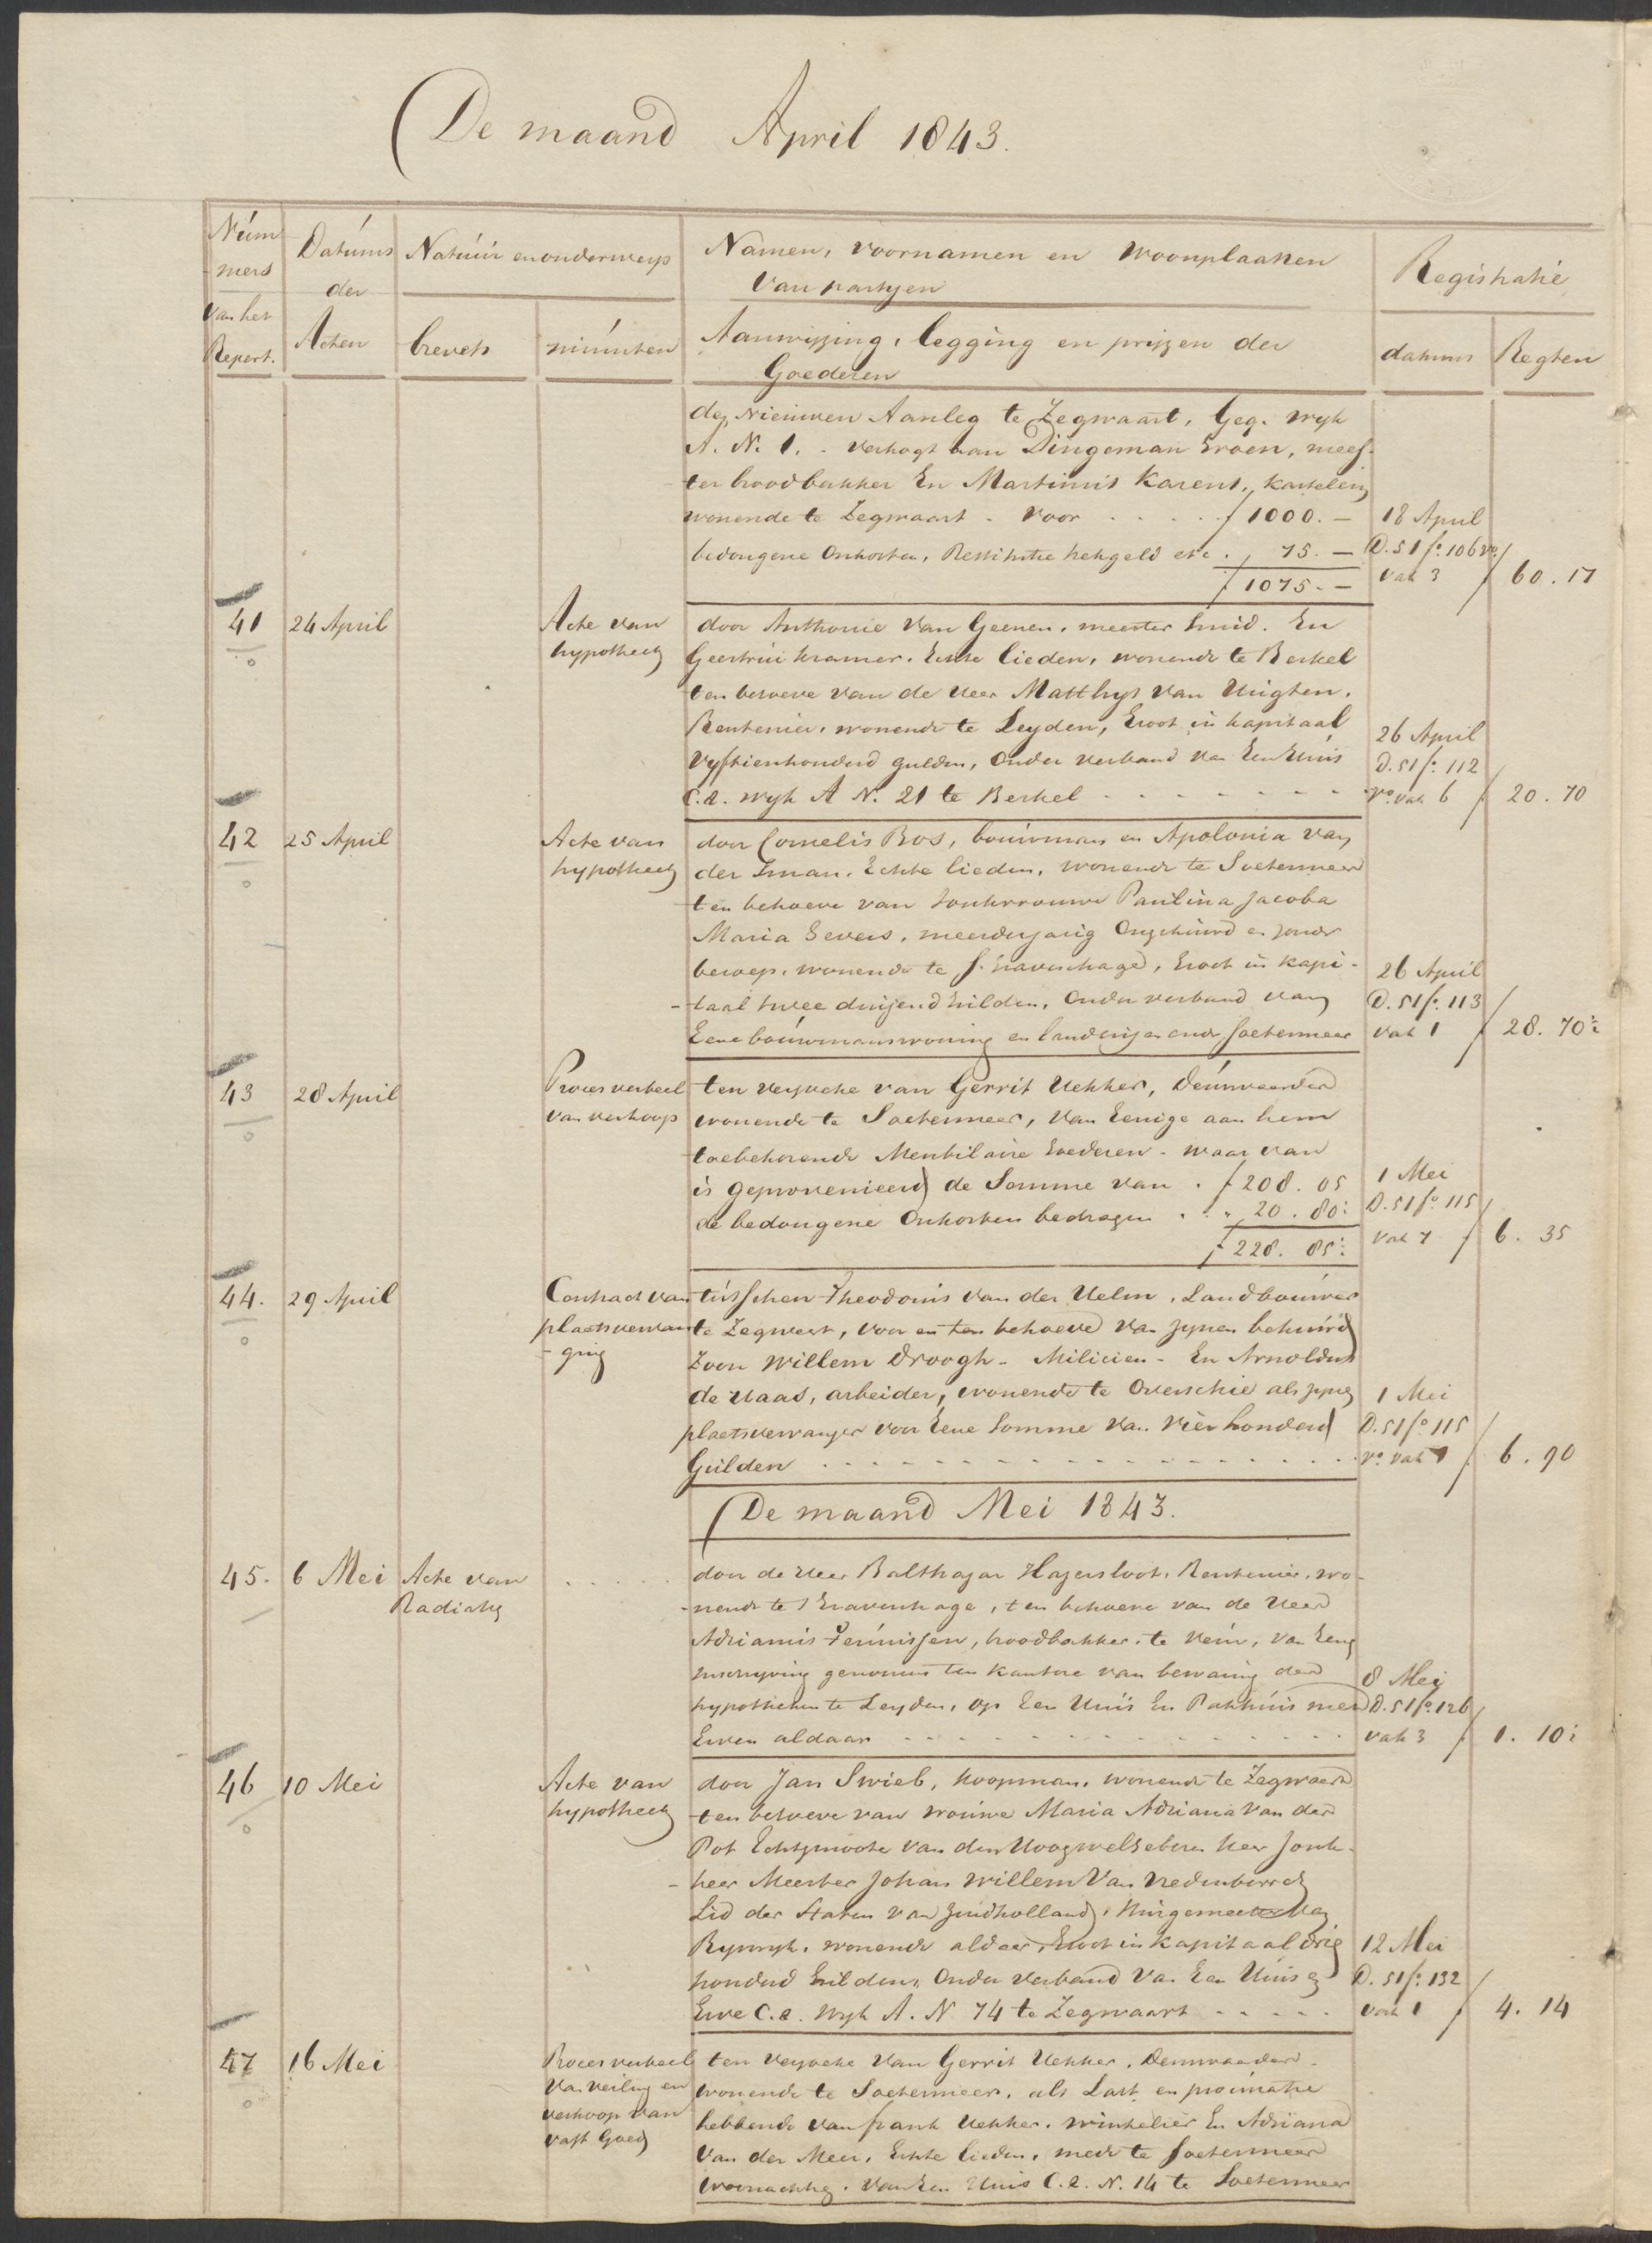 De maand April 1843.
Núm
mers
van het
Repert.
Datúms
der
Acten
Natúúr en onderwerp
brevets
minúten
Namen, voornamen en woonplaatsen
van partyen
Aanwijzing, legging en prijzen der
Goederen
Registratie
datums
Regten
den Nieuwen Aanleg te Zegwaart, Geq. wyk
A. N. 1. verkogt aan Dingeman Groen, mees-
ter broodbakker En Martinus Karens, kastelein
wonende te Zegwaart. voor f 1000. —
bedongene Onkosten, Restitutie hekgeld etc. " 75. —
f 1075. —
18 April
D. 51 fo. 106 vo.
vak 3 f 60. 17
41 24 April Acte van
hypotheek
door Anthonie van Geenen, meester Smid. En
Geertrui Kramer. Echte lieden, wonende te Berkel
ten behoeve van de Heer Matthys van Uigten,
Rentenier, wonende te Leyden, Groot in kapitaal
Vyftienhonderd gulden, Onder verband van Een Huis
C.a. wyk A N. 21 te Berkel
26 April
D. 51 fo. 112
vo. vak 6 f 20. 70
42 25 April Acte van
hypotheek
door Cornelis Bos, bouwman en Apolonia van
der Sman. Echte lieden, wonende te Soetermeer
ten behoeve van Jonkvrouwe Paulina Jacoba
Maria Gevers, meerderjarig Ongehuwd en zonder
beroep, wonende te s. Gravenhage, Groot in kapi-
taal twee duizend Gulden, Onder verband van
Eene bouwmanswoning en landerijen onder Soetermeer
26 April
D. 51 fo. 113
vak 1 f 28. 70
43 28 April Proces verbaal
van verkoop
ten verzoeke van Gerrit Hekker, Deurwaarder
wonende te Soetermeer, van Eenige aan hem
toebehorende Meubilaire Goederen. waar van
is geprovenieerd de Somme van f 208. 05
de bedongene Onkosten bedragen " 20. 80
f 228. 85
1 Mei
D. 51 fo. 115
vak 7 f 6. 35
44. 29 April Contract van
plaatsvervan
ging
tusschen Theodorus van der Helm, Landbouwer
te Zegwaart, voor en ten behoeve van zynen behuwd
Zoon Willem Droogh. Milicien. En Arnoldus
de Haas, arbeider, wonende te Overschie als zyne
plaatsvervanger voor Eene Somme van vier honderd
Gulden
1 Mei
D. 51 fo 115
vo. vak f 6. 90
De maand Mei 1843.
45. 6 Mei Acte van
Radiatie
door de Heer Balthazar Hagersloot, Rentenier, wo-
nende te s Gravenhage, ten behoeve van de Heer
Adrianus Teunissen, broodbakker te Veur, van Eene
inschryving genomen ten Kantore van bewaring der
hypotheken te Leyden, op Een Huis En Pakhuis met
Erven aldaar
8 Mei
D. 51 fo. 126
vak 3 f 1. 10
46 10 Mei Acte van
hypotheek
door Jan Swieb, koopman, wonende te Zegwaart
ten behoeve van vrouwe Maria Adriana van der
Pot Echtgenoote van den Hoogwelgeboren Heer Jonk-
heer Meester Johan Willem van Vredenburch
Lid der Staten van Zuidholland, Burgemeester van
Ryswyk. wonende aldaar, Groot in Kapitaal drie
honderd Gulden, Onder verband van Een Huis en
Erve C.a. wyk A. N 74 te Zegwaart
12 Mei
D. 51 fo. 132
vak 1 f 4. 14
47 16 Mei Proces verbaal
van veiling en
verkoop van
vast Goed
ten verzoeke van Gerrit Hekker. Deurwaarder.
wonende te Soetermeer. als Last en procuratie
hebbende van Frank Hekker. winkelier En Adriana
van der Meer, Echte lieden, mede te Soetermeer
woonachtig. van Een Huis C.a. N. 14 te Soetermeer